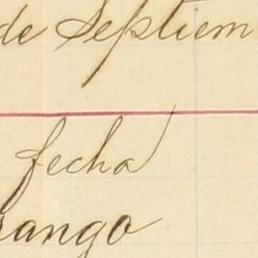 de Septiem
fecha
rango